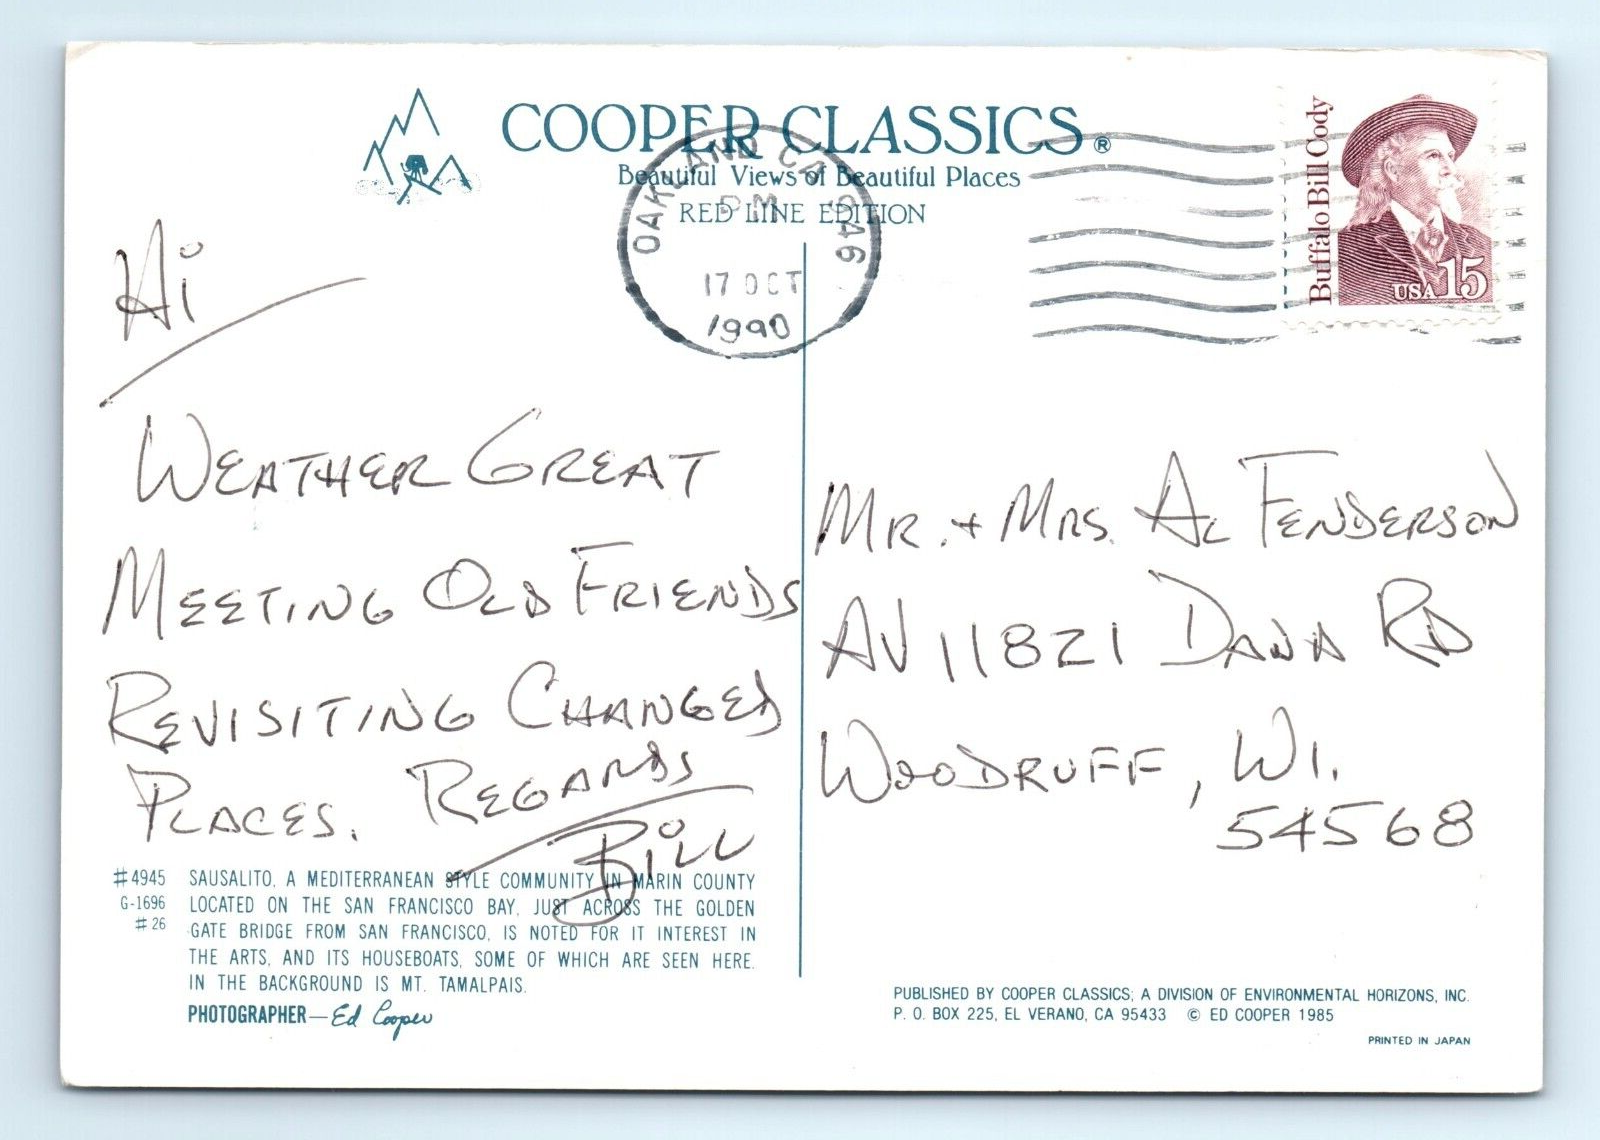 COOPER CLASSICS®
Beautiful Views of Beautiful Places
RED LINE EDITION
OAKLAND CA 946
PM
17 OCT
1990
Buffalo Bill Cody
USA 15
Hi
WEATHER GREAT
MEETING OLD FRIENDS
REVISITING CHANGED
PLACES. REGARDS
BILL
MR. + MRS. AL FENDERSON
AV 11821 DANA RD
WOODRUFF, WI.
54568
#4945
G-1696
#26
SAUSALITO, A MEDITERRANEAN STYLE COMMUNITY IN MARIN COUNTY
LOCATED ON THE SAN FRANCISCO BAY, JUST ACROSS THE GOLDEN
GATE BRIDGE FROM SAN FRANCISCO, IS NOTED FOR IT INTEREST IN
THE ARTS, AND ITS HOUSEBOATS, SOME OF WHICH ARE SEEN HERE.
IN THE BACKGROUND IS MT. TAMALPAIS.
PHOTOGRAPHER—Ed Cooper
PUBLISHED BY COOPER CLASSICS; A DIVISION OF ENVIRONMENTAL HORIZONS, INC.
P. O. BOX 225, EL VERANO, CA 95433 © ED COOPER 1985
PRINTED IN JAPAN